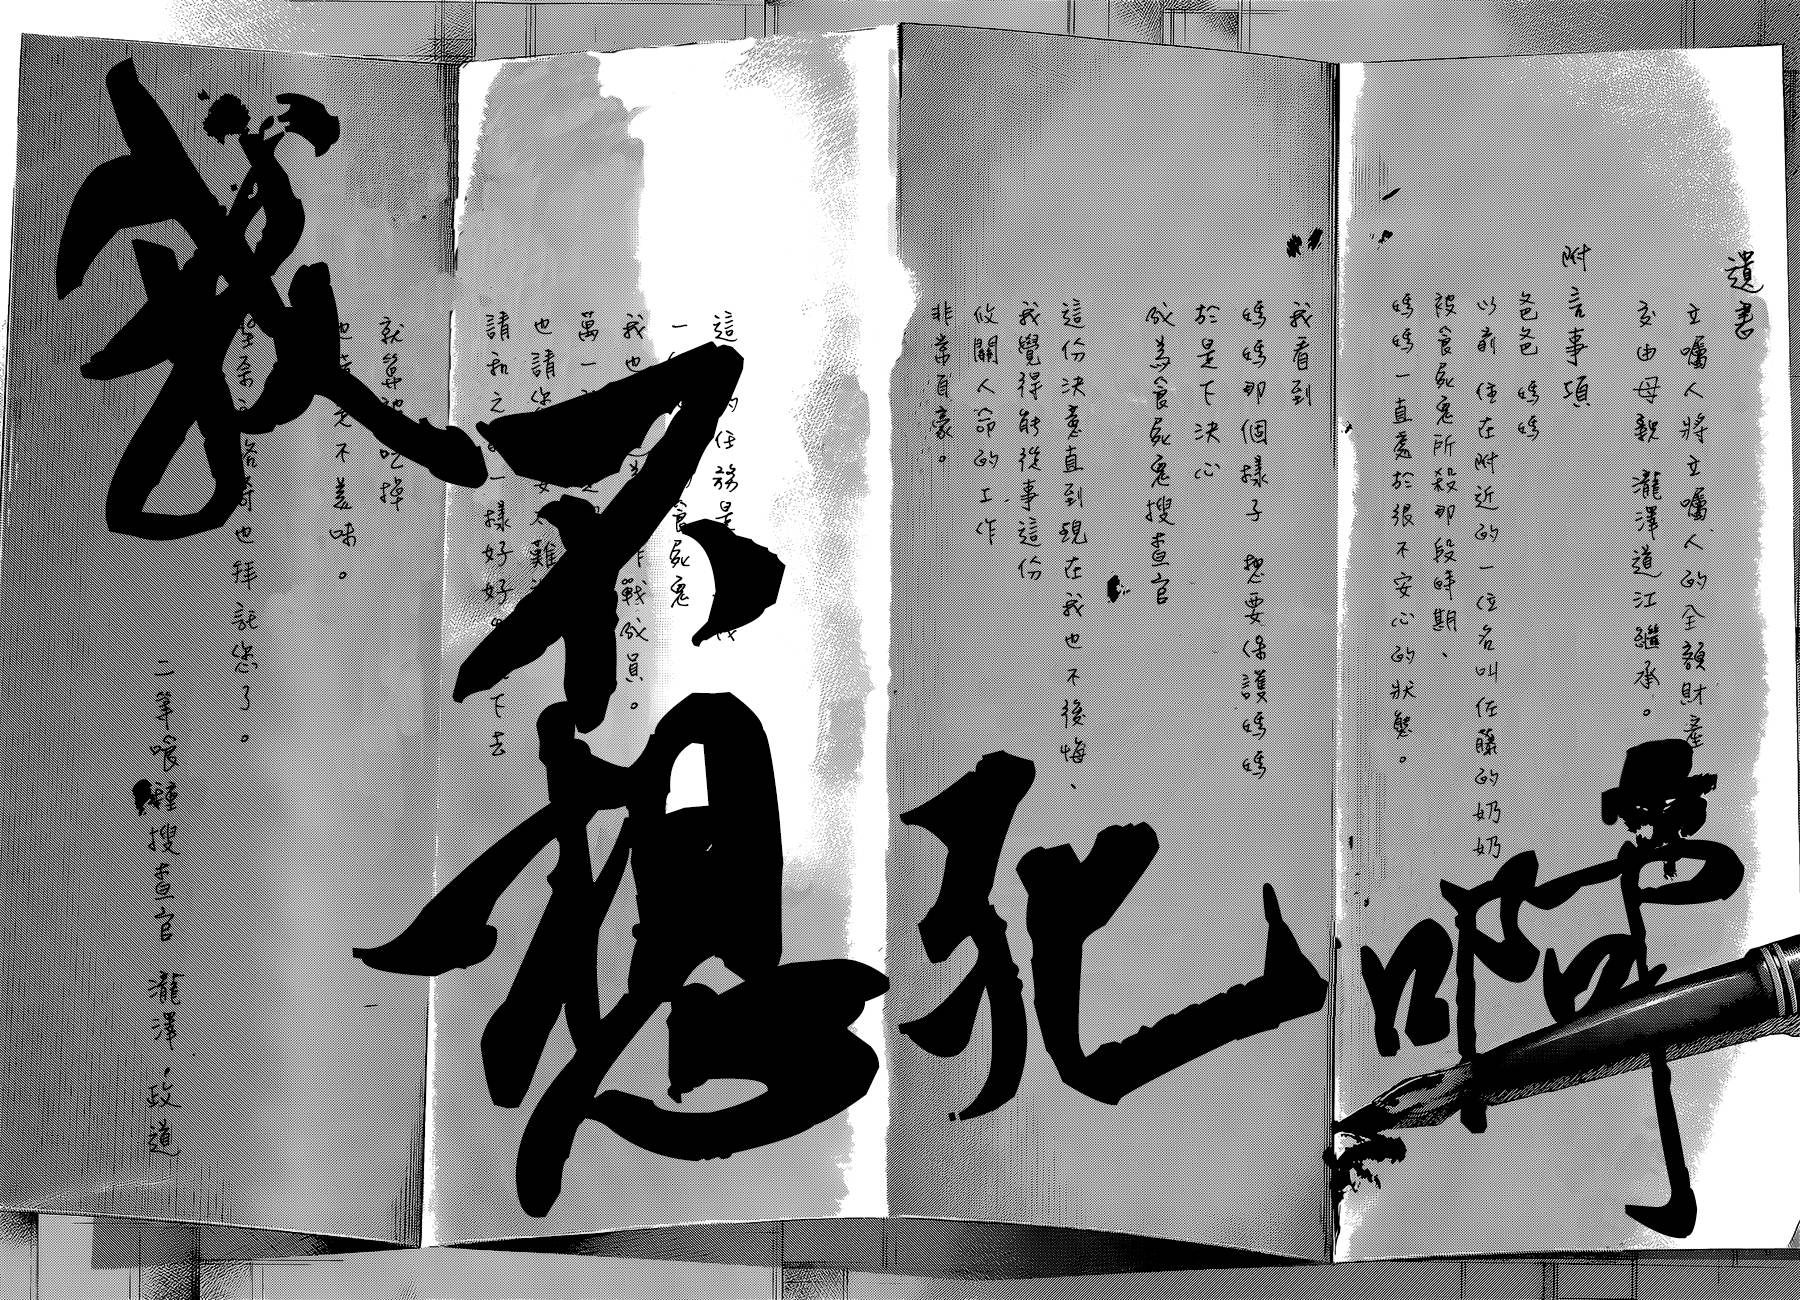 遺書
立囑人將立囑人的全額財產
交由母親 瀧澤道江繼承。
附言事項
爸爸 媽媽
以前住在附近的一位名叫佐藤的奶奶
被食屍鬼所殺那段時期、
媽媽一直處於很不安心的狀態。
我看到
媽媽那個樣子 想要保護媽媽
於是下決心
成為食屍鬼搜查官
這份決意直到現在我也不後悔、
我覺得能從事這份
攸關人命的工作
非常自豪。
這 的任務是
一 食屍鬼
我也 作戰成員。
萬一
也請您 難
請和之 一樣好好 下去
就算被吃掉
也 不美味。
聖奈 也拜託您了。
二等喰種搜查官 瀧澤 政道
我不想死啊啊